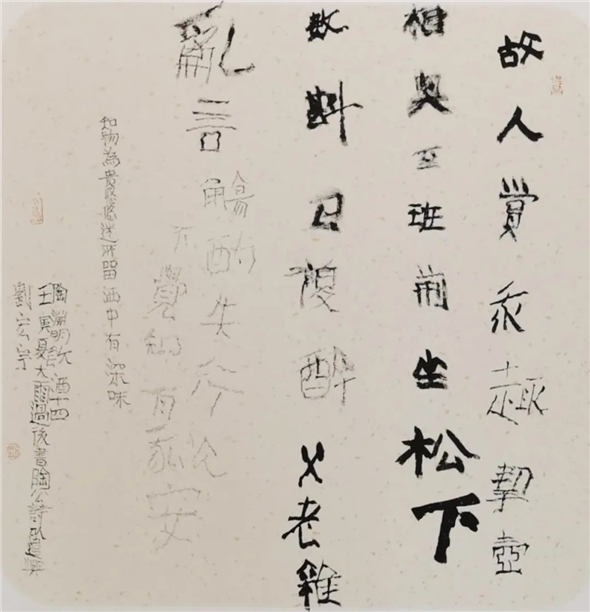 故人賞我趣挈壺
相與至班荊坐松下
數斟已復醉父老雜
亂言觴酌失行次
不覺知有我安
知物為貴悠悠迷所留酒中有深味
陶淵明飲酒十四
壬寅夏大雨過後書陶公詩
劉宏宇